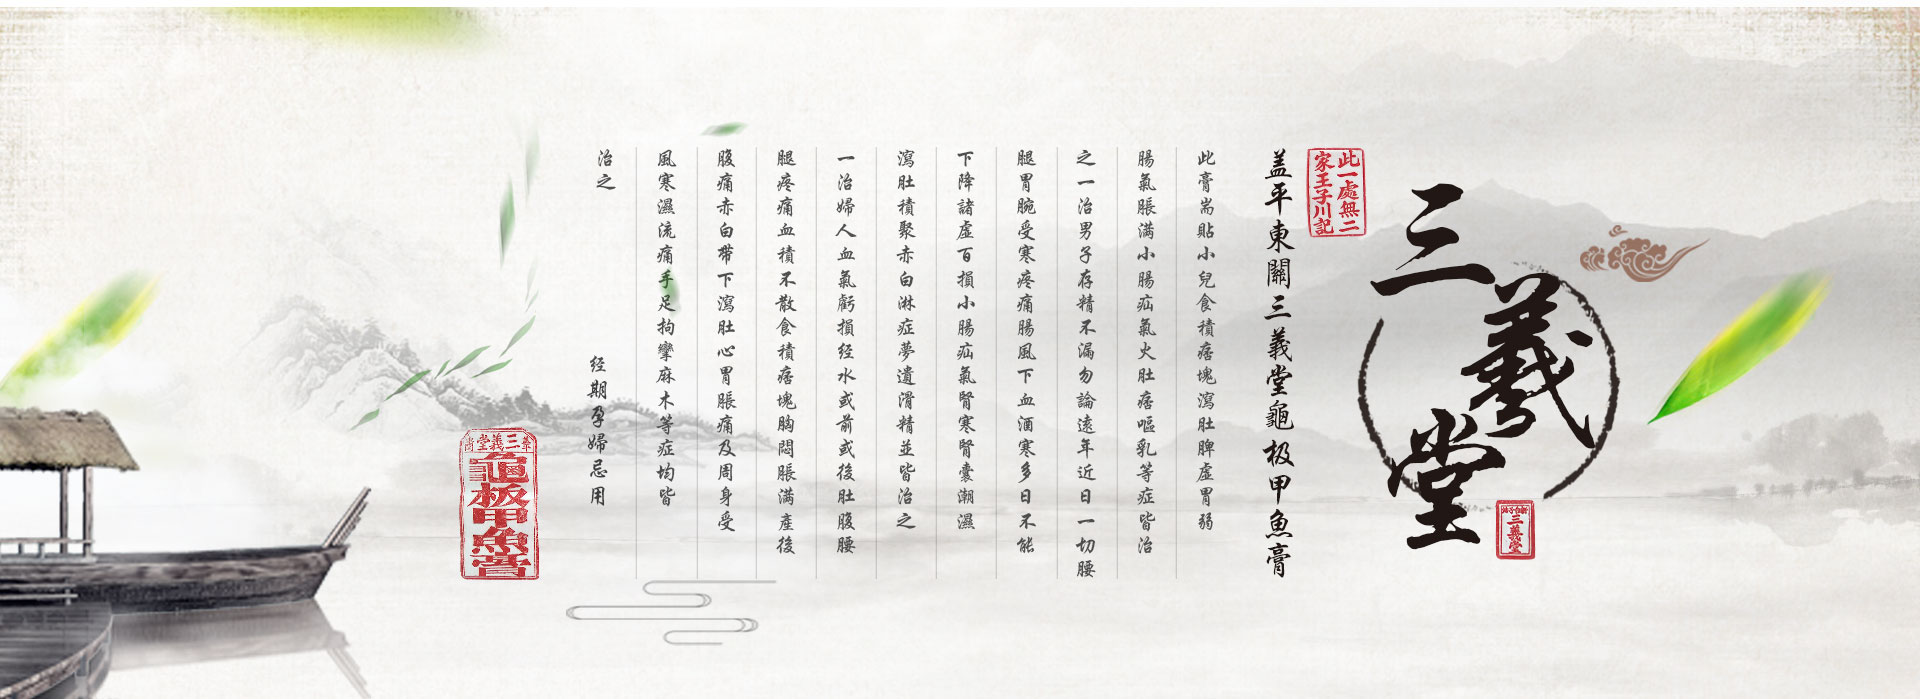 三義堂
三義堂
此一處無二
家王子川記
盖平東關三義堂龜极甲魚膏
此膏耑貼小兒食積痞塊瀉肚脾虛胃弱
腸氣脹满小腸疝氣火肚痞嘔乳等症皆治
之一治男子存精不漏勿論遠年近日一切腰
腿胃腕受寒疼痛腸風下血酒寒多日不能
下降諸虛百損小腸疝氣腎寒腎囊潮濕
瀉肚積聚赤白淋症夢遺滑精並皆治之
一治婦人血氣虧損经水或前或後肚腹腰
腿疼痛血積不散食積痞塊胸悶脹满產後
腹痛赤白帶下瀉肚心胃脹痛及周身受
風寒濕流痛手足拘攣麻木等症均皆
治之
经期孕婦忌用
三義堂
龜板甲魚膏